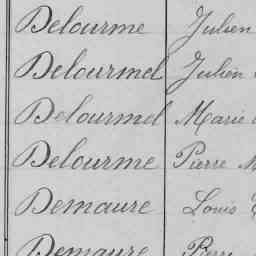 Delourme Julien
Delourmel Julien
Delourmel Marie
Delourme Pierre M
Demaure Louis
Demaure Pierre